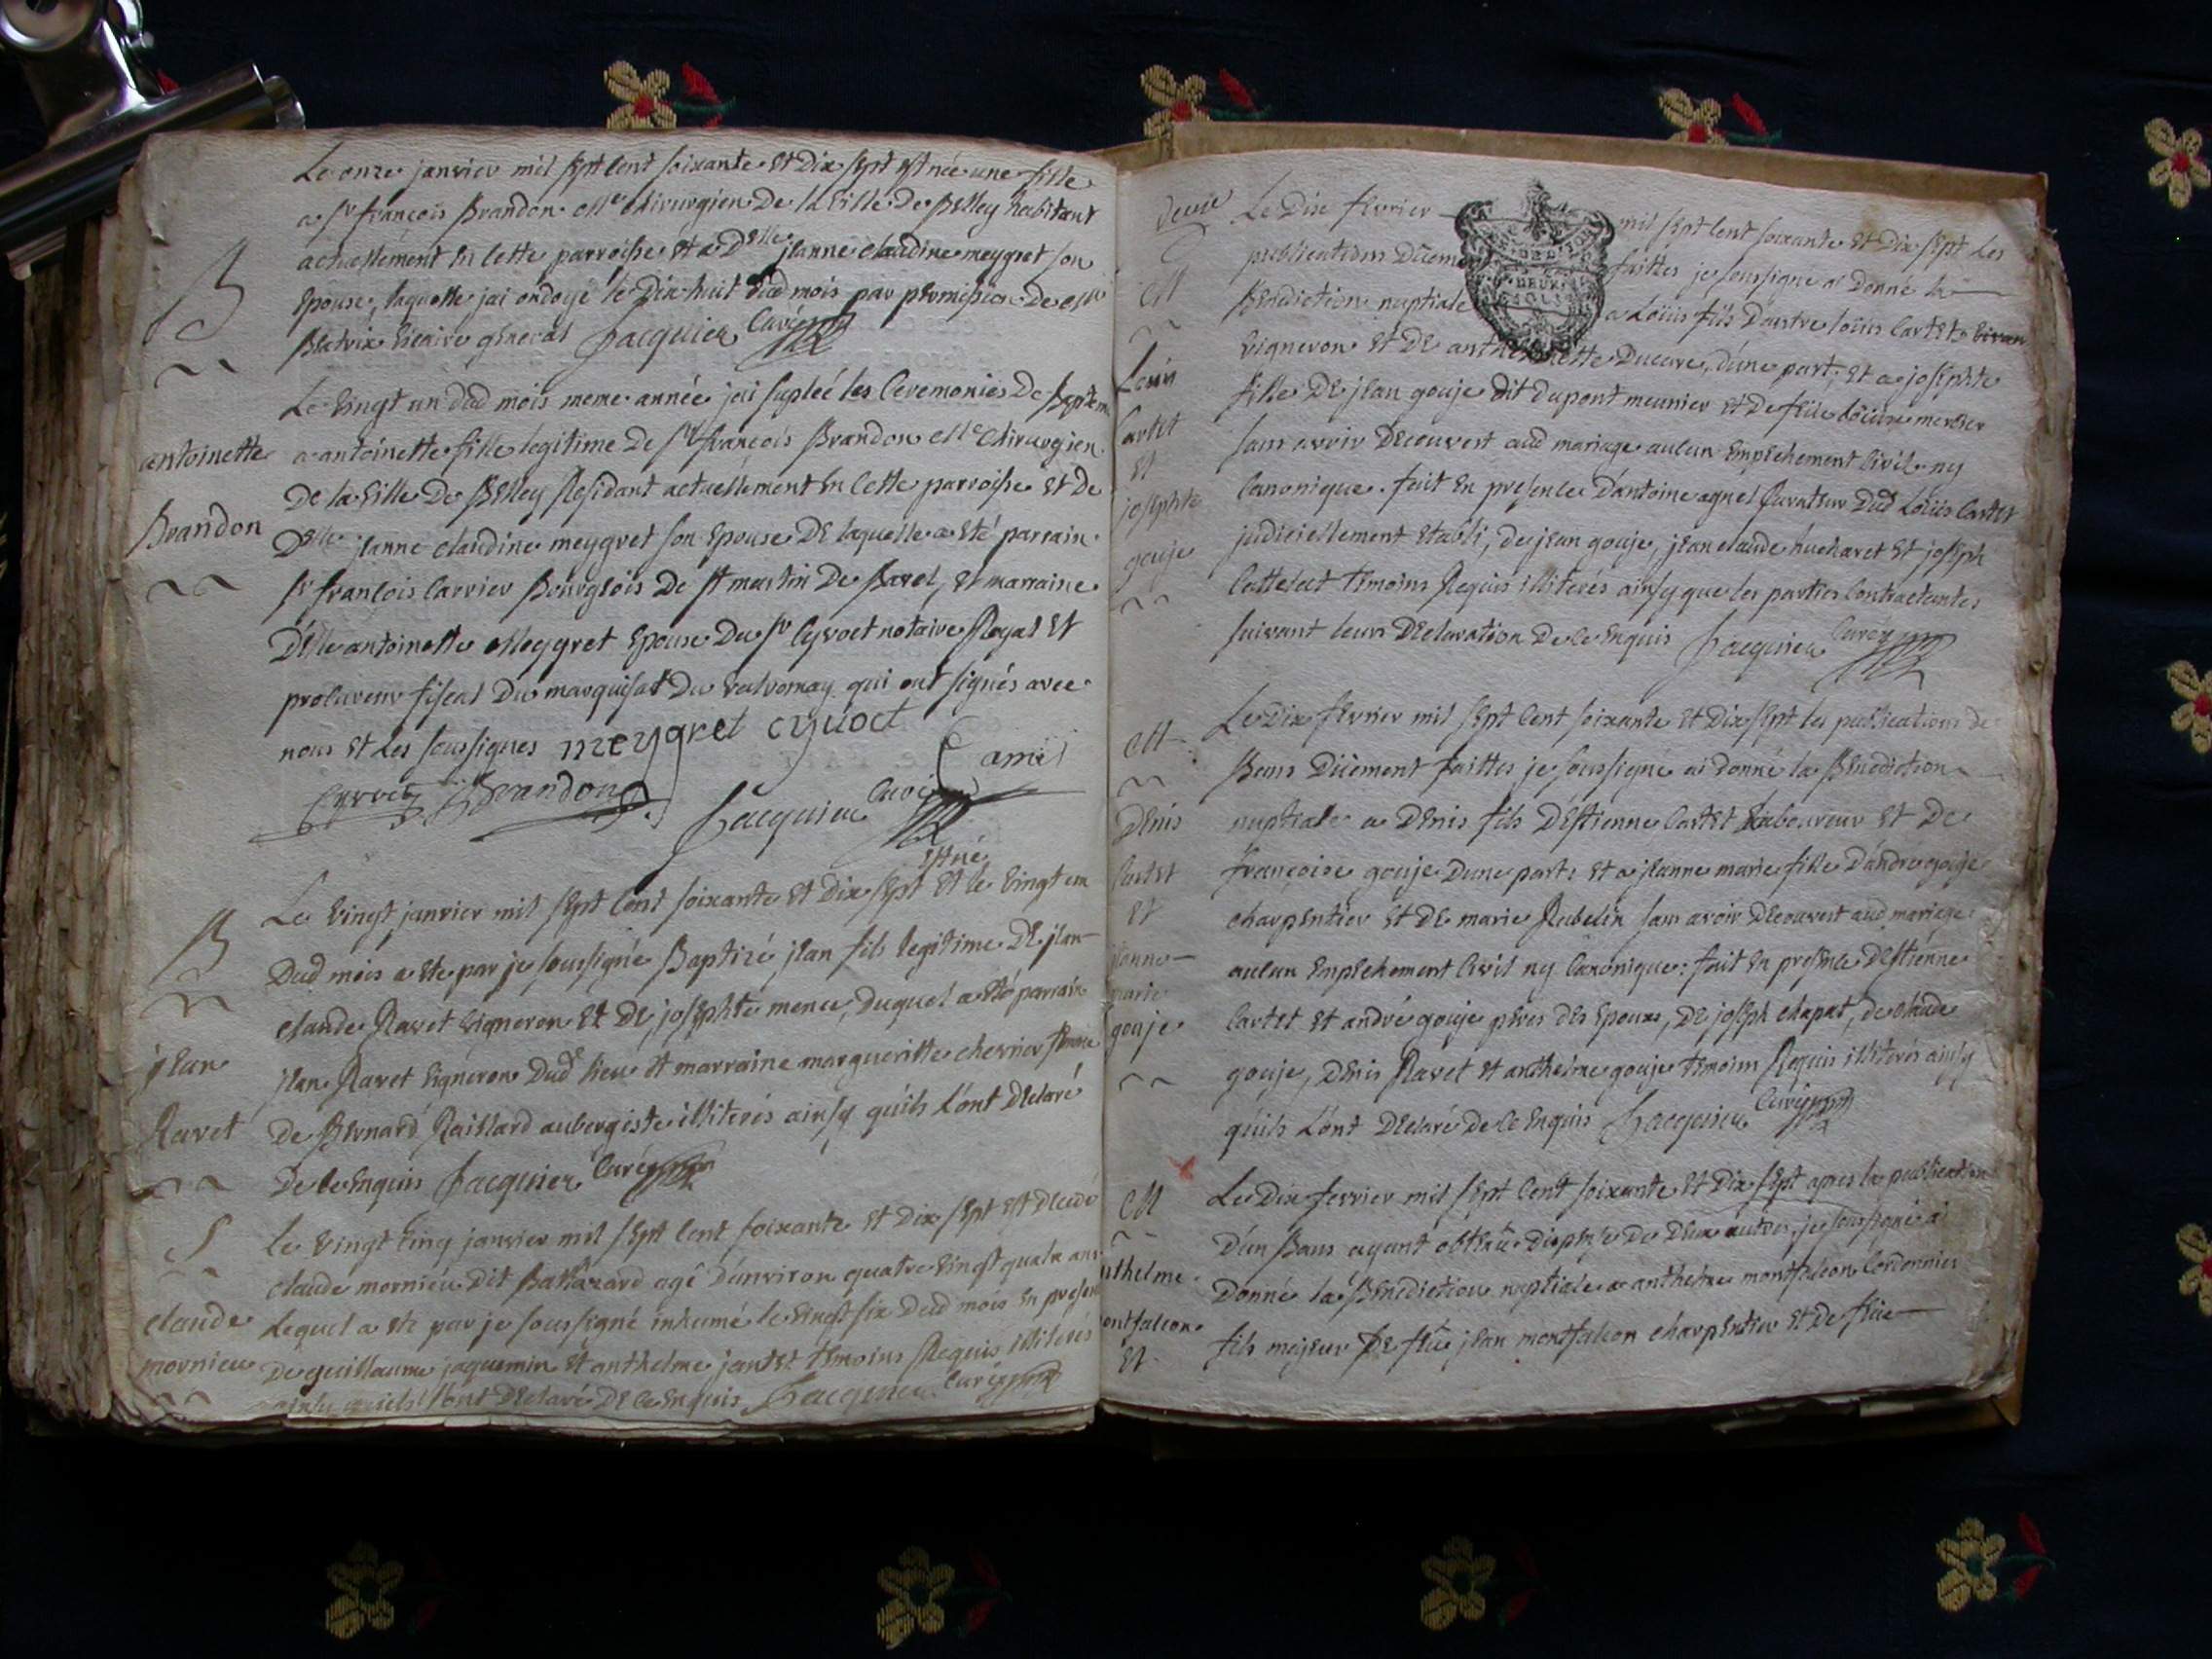 Le onze janvier mil sept cent soixante et dix sept est née une fille
a Sr françois Brandon Me chirurgien De la Ville De Belley habitant
actuellement En Cette parroisse et a Delle jeanne claudine meygret son
B
Epouse, laquelle jai ondoyé le Dix huit dud mois par permission De Mr
vicaire general Jacquier Curé
Le vingt un dud mois meme année jai supleé les Ceremonies De
antoinette
a antoinette fille legitime De Sr françois Brandon Me Chirurgien
De la Ville De Belley Residant actuellement En Cette parroisse et De
Brandon
Delle jeanne claudine meygret son Epouse De laquelle a eté parrain
Sr françois Carrier Bourgeois De St martin De Bavel, et marraine
Delle antoinette Meygret Epouse Du Sr Cyvoct notaire Royal et
procureur fiscal Du marquisat Du valromay qui ont signés avec
nous et Les soussignes meygret cyvoct
Cyvoct Brandon Jacquier Curé
est né
Le vingt janvier mil sept Cent soixante et Dix sept et le vingt un
B
Dud mois a ete par je soussigné Baptizé jean fils legitime De jean
claude Ravet vigneron et De josephte mence, duquel a eté parrain
jean
jean Ravet vigneron Dud lieu et marraine margueritte chevrier femme
Ravet
De Bernard Raillard aubergiste illiterés ainsy quils Lont Declaré
De Ce Enquis Jacquier Curé
S
Le vingt Cinq janvier mil sept Cent soixante et Dix sept est decedé
claude mornieu Dit Baltazard agé Denviron quatre vingt quatre ans
claude
Lequel a ete par je soussigné inhumé le vingt six Dud mois En presence
mornieu
De guillaume jaquemin et anthelme jantet temoins Requis illiterés
ainsy quils Lont Declaré De Ce Enquis Jacquier Curé
Le Dix fevrier mil sept Cent soixante et Dix sept Les
publications Düem faittes je soussigné ai Donné la
M
Benediction nuptiale a Loüis fils Dautre loüis Cartet vivan
Louis
vigneron et De Ducure, dune part, et a josephte
fille De jean gouje dit dupont meunier et De feüe
Cartet
sans avoir Decouvert aud mariage aucun Empechement Civil ny
et
Canonique. fait En presence Dantoine agnel Curateur Dud Loüis Cartet
josephte
judiciellement etabli, de jean gouje, jean claude hucharet et joseph
gouje
temoins Requis illiterés ainsy que les parties Contractantes
suivant leurs Declaration De Ce Enquis Jacquier Curé
Le Dix fevrier mil sept Cent soixante et Dix sept les publications de
M
Bans Düement faittes je soussigné ai donné la Benediction
Denis
nuptiale a Denis fils Destienne Cartet Laboureur et De
Cartet
françoise gouje Dune part: et a jeanne marie fille Dandré gouje
et
charpentier et De marie Rubelin sans avoir Decouvert aud mariage
jeanne
aucun Empechement Civil ny Canonique: fait En presence Destienne
marie
Cartet et andré gouje peres des Epoux, De joseph chapat, de claude
gouje
gouje, Denis Ravet et anthelme gouje temoins Requis illiterés ainsy
quils Lont Declaré De Ce Enquis Jacquier Curé
M
Le Dix fevrier mil sept Cent soixante et Dix sept apres la publication
Dun Bans ayant obtenu Dispense De Deux autres, je soussigné ai
nthelme
Donné la Benediction nuptiale a anthelme montfalcon Cordonnier
ontfalcon
fils majeur De feü jean montfalcon charpentier et De feüe
et